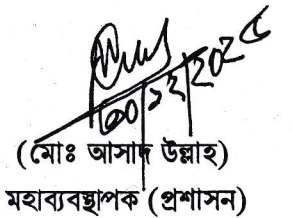 ৩০/১২/২০২৫
(মোঃ আসাদ উল্লাহ)
মহাব্যবস্থাপক (প্রশাসন)